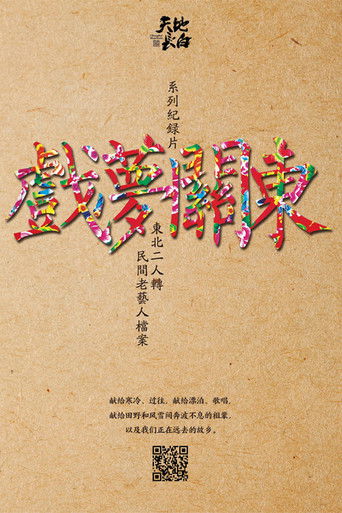 天地
長白
系列紀録片
戲夢關東
東北二人轉
民間老藝人檔案
献给寒冷、过往，献给漂泊、歌唱，
献给田野和风雪间奔波不息的祖辈，
以及我们正在远去的故乡。